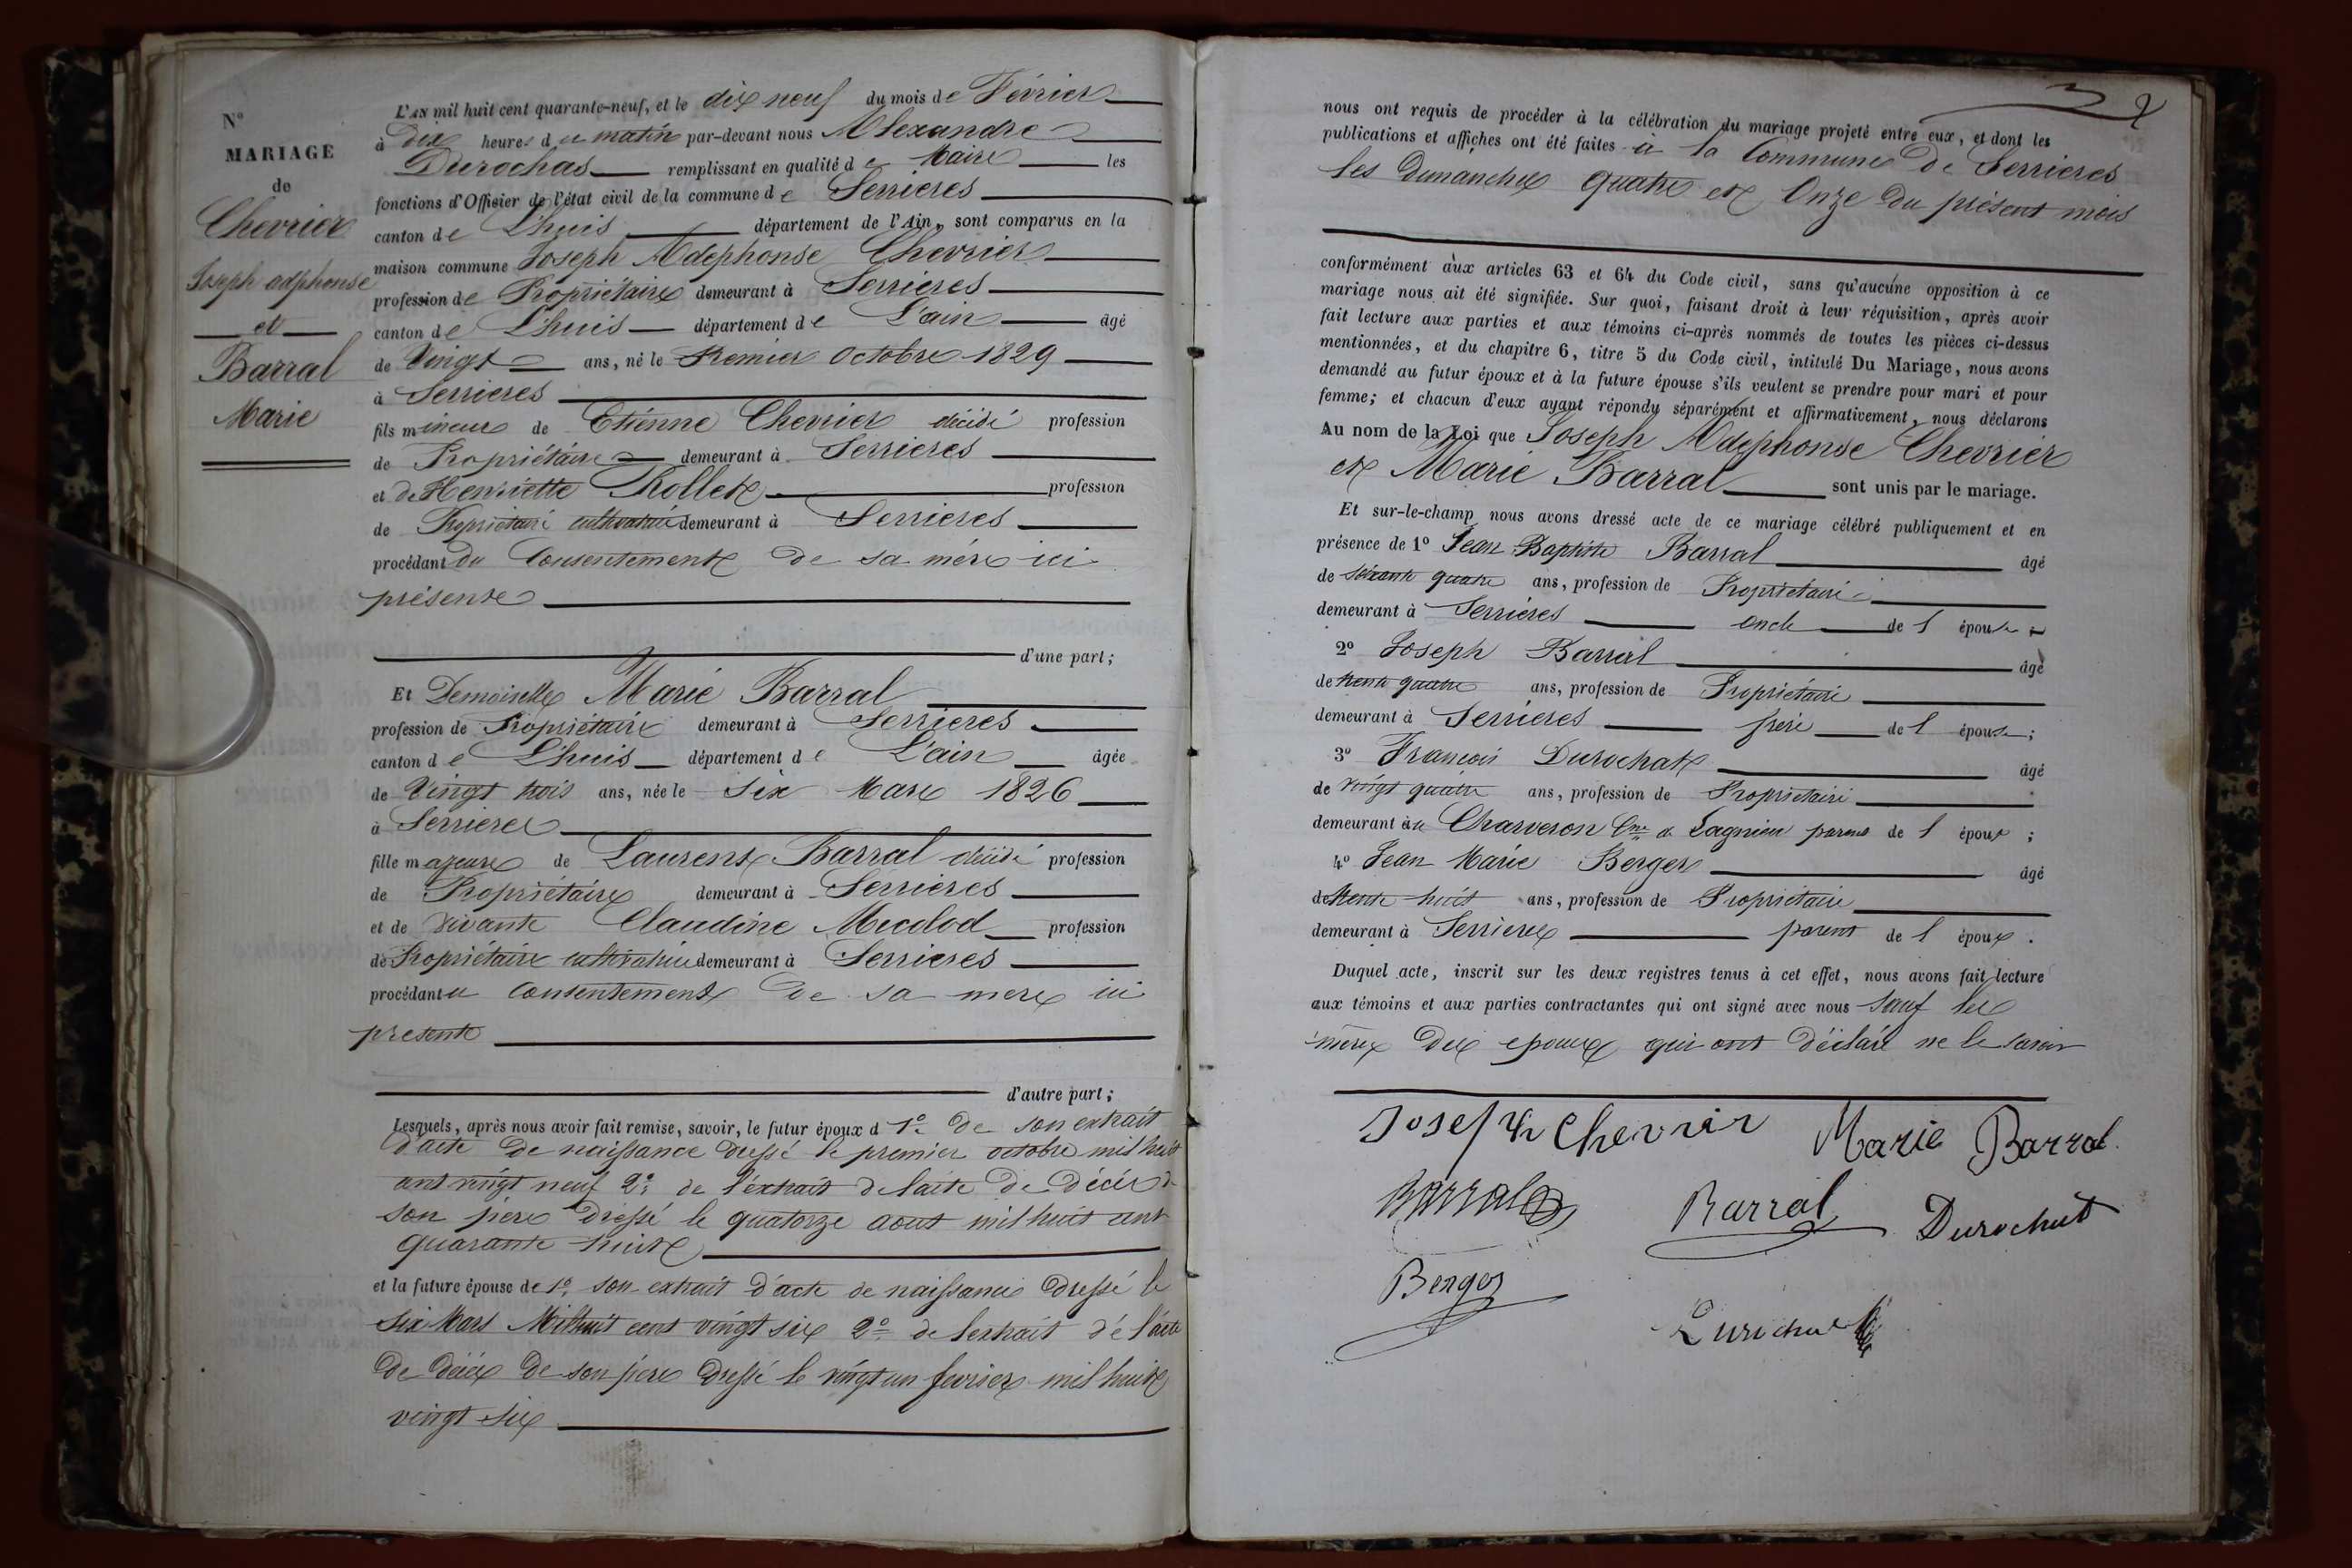 N°
MARIAGE
de
Chevrier
Joseph adphonse
et
Barral
Marie
L'AN mil huit cent quarante-neuf, et le dix neuf du mois de Février
à Dix heures du matin par-devant nous Alexandre
Durochas remplissant en qualité de Maire les
fonctions d'Officier de l'état civil de la commune de Serrieres
canton de L'huis département de l'Ain, sont comparus en la
maison commune Joseph Adephonse Chevrier
profession de Propriétaire demeurant à Serrieres
canton de L'huis département de L'ain âgé
de Vingt ans, né le Premier Octobre 1829
à Serrieres
fils mineur de Etienne Chevrier décédé profession
de Propriétaire demeurant à Serrieres
et de Henriette Rollet profession
de Propriétaire cultivatrice demeurant à Serrieres
procédant du Consentement de sa mère ici
présente
d'une part;
Et Demoiselle Marie Barral
profession de Propriétaire demeurant à Serrieres
canton de L'huis département de L'ain âgée
de Vingt trois ans, née le Six Mars 1826
à Serrieres
fille majeure de Laurent Barral décédé profession
de Propriétaire demeurant à Serrieres
et de vivante Claudine Mecolod profession
de Propriétaire cultivatrice demeurant à Serrieres
procédant u consentement de sa mere ici
presente
d'autre part;
Lesquels, après nous avoir fait remise, savoir, le futur époux d 1° de son extrait
d'acte de naissance dressé le premier octobre mil huit
cent vingt neuf 2° de l'extrait de l'acte de décès de
son père dressé le quatorze aout mil huit cent
quarante huit
et la future épouse de 1° son extrait d'acte de naissance dressé le
six Mars Mil huit cent vingt six 2° de l'extrait de l'acte
de décès de son père dressé le vingt un fevrier mil huit
vingt six
nous ont requis de procéder à la célébration du mariage projeté entre eux, et dont les
publications et affiches ont été faites a la Commune de Serrieres
les Dimanches quatre et Onze du présent mois
conformément aux articles 63 et 64 du Code civil, sans qu'aucune opposition à ce
mariage nous ait été signifiée. Sur quoi, faisant droit à leur réquisition, après avoir
fait lecture aux parties et aux témoins ci-après nommés de toutes les pièces ci-dessus
mentionnées, et du chapitre 6, titre 5 du Code civil, intitulé Du Mariage, nous avons
demandé au futur époux et à la future épouse s'ils veulent se prendre pour mari et pour
femme; et chacun d'eux ayant répondu séparément et affirmativement, nous déclarons
Au nom de la Loi que Joseph Adephonse Chevrier
et Marie Barral sont unis par le mariage.
Et sur-le-champ nous avons dressé acte de ce mariage célébré publiquement et en
présence de 1° Jean Baptiste Barral âgé
de soixante quatre ans, profession de Propriétaire
demeurant à Serrières oncle de l épouse
2° Joseph Barral âgé
de trente quatre ans, profession de Propriétaire
demeurant à Serrieres frère de l épouse;
3° Francois Durochat âgé
de vingt quatre ans, profession de Propriétaire
demeurant à Charveron Cne de Lagnieu parent de l époux;
4° Jean Marie Berger âgé
de trente huit ans, profession de Propriétaire
demeurant à Serrieres parent de l époux.
Duquel acte, inscrit sur les deux registres tenus à cet effet, nous avons fait lecture
aux témoins et aux parties contractantes qui ont signé avec nous sauf les
mères des epoux qui ont déclaré ne le savoir
Joseph Chevrier Marie Barral
Barral Barral Durochat
Berger